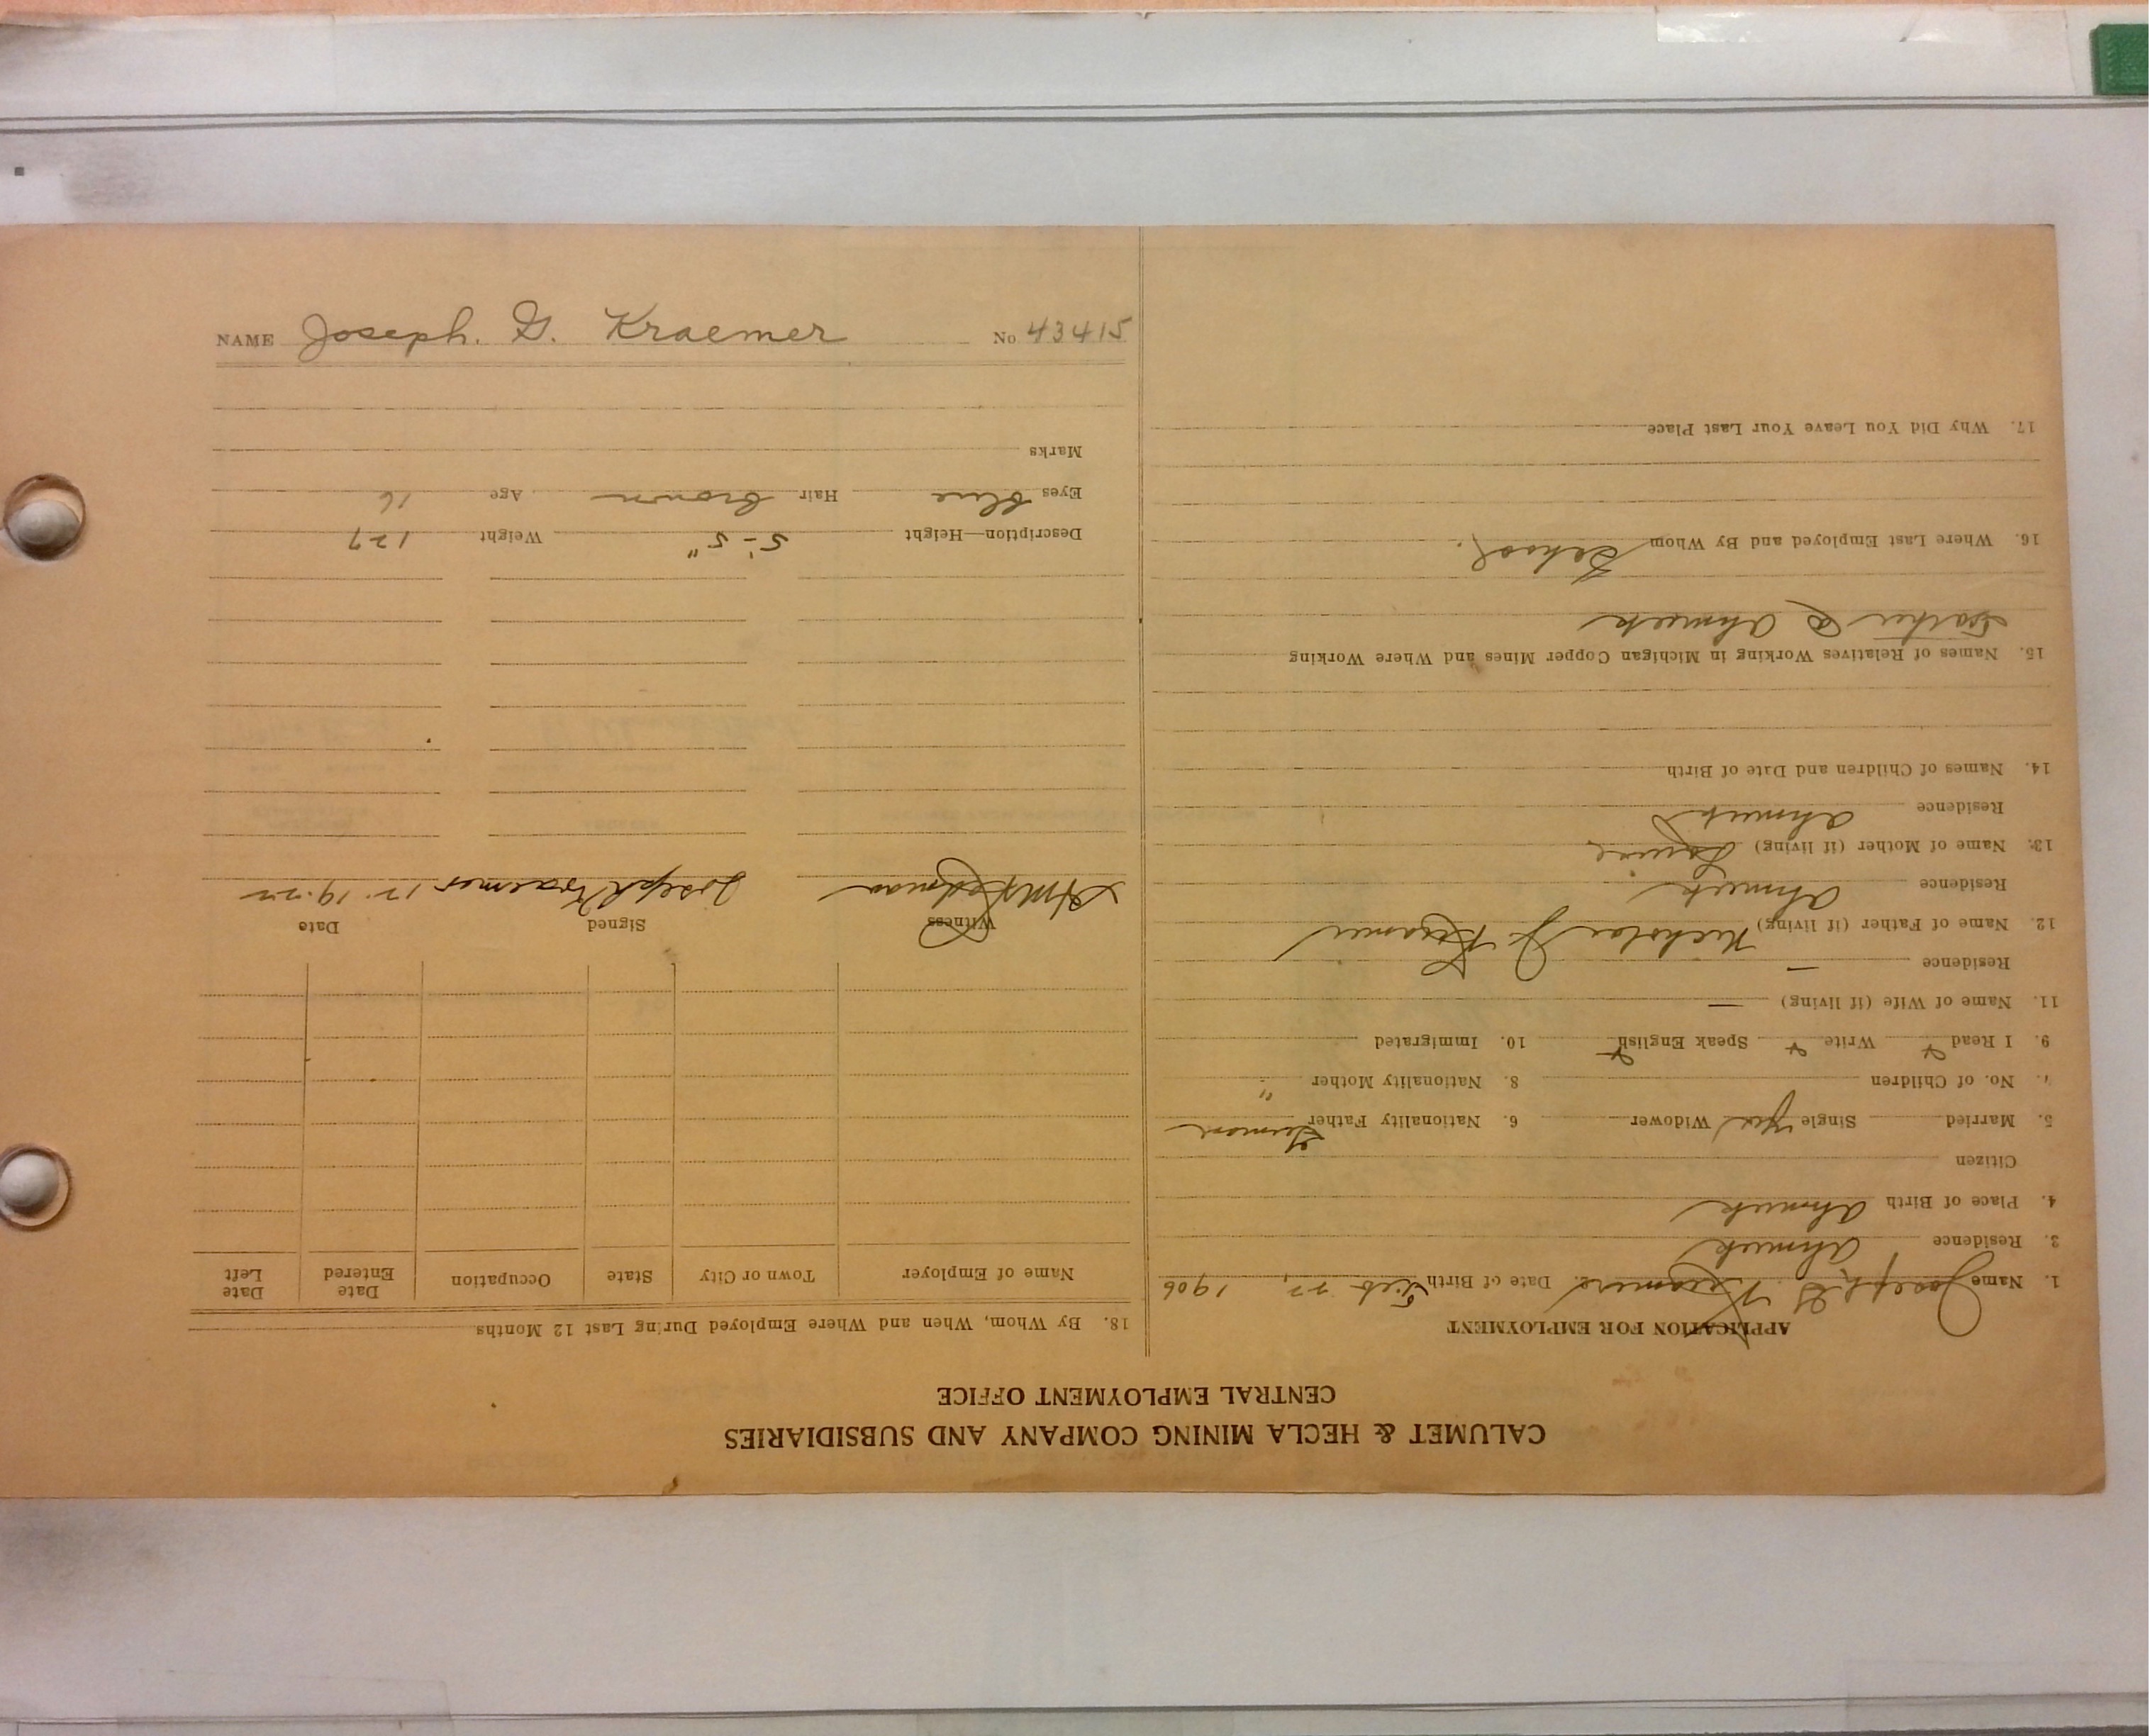 NAME Joseph. G. Kraemer No 43415
CALUMET & HECLA MINING COMPANY AND SUBSIDIARIES
CENTRAL EMPLOYMENT OFFICE
APPLICATION FOR EMPLOYMENT
1. Name Joseph G. Date of Birth Feb 22, 1906
3. Residence Ahmeek
4. Place of Birth Ahmeek
Citizen
5. Married Single Yes Widower 6. Nationality Father German
7. No. of Children 8. Nationality Mother "
9. I Read Write Speak English 10. Immigrated
11. Name of Wife (if living) —
Residence —
12. Name of Father (if living) Nicholas J.
Residence Ahmeek
13. Name of Mother (if living)
Residence Ahmeek
14. Names of Children and Date of Birth
15. Names of Relatives Working in Michigan Copper Mines and Where Working
Father @ Ahmeek
16. Where Last Employed and By Whom School.
17. Why Did You Leave Your Last Place
18. By Whom, When and Where Employed During Last 12 Months
Name of Employer Town or City State Occupation Date Entered Date Left
Witness Signed Date
Joseph Kraemer 12-19-22
Description—Height 5'-5" Weight 127
Eyes blue Hair brown Age 16
Marks